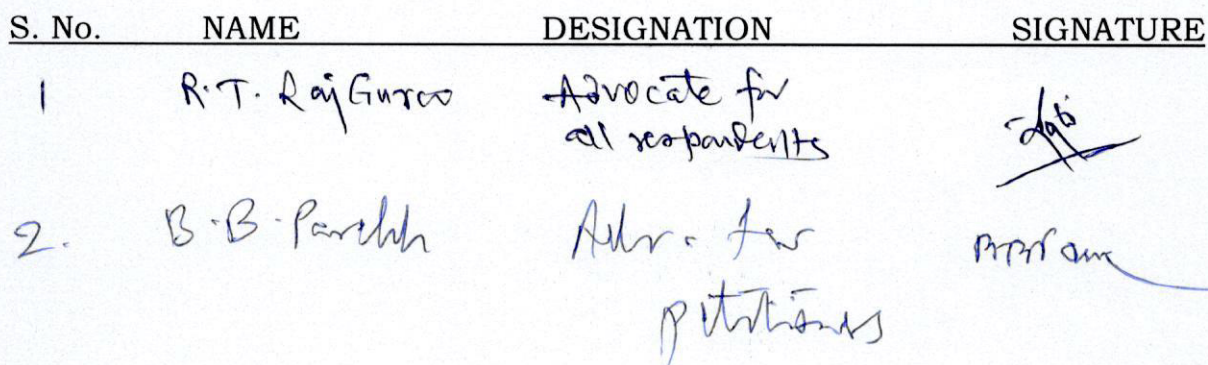 S. No. NAME DESIGNATION SIGNATURE
1 R.T. RajGuroo Advocate for
all respondents
2. B.B. Parekh Adv. for
petitioners